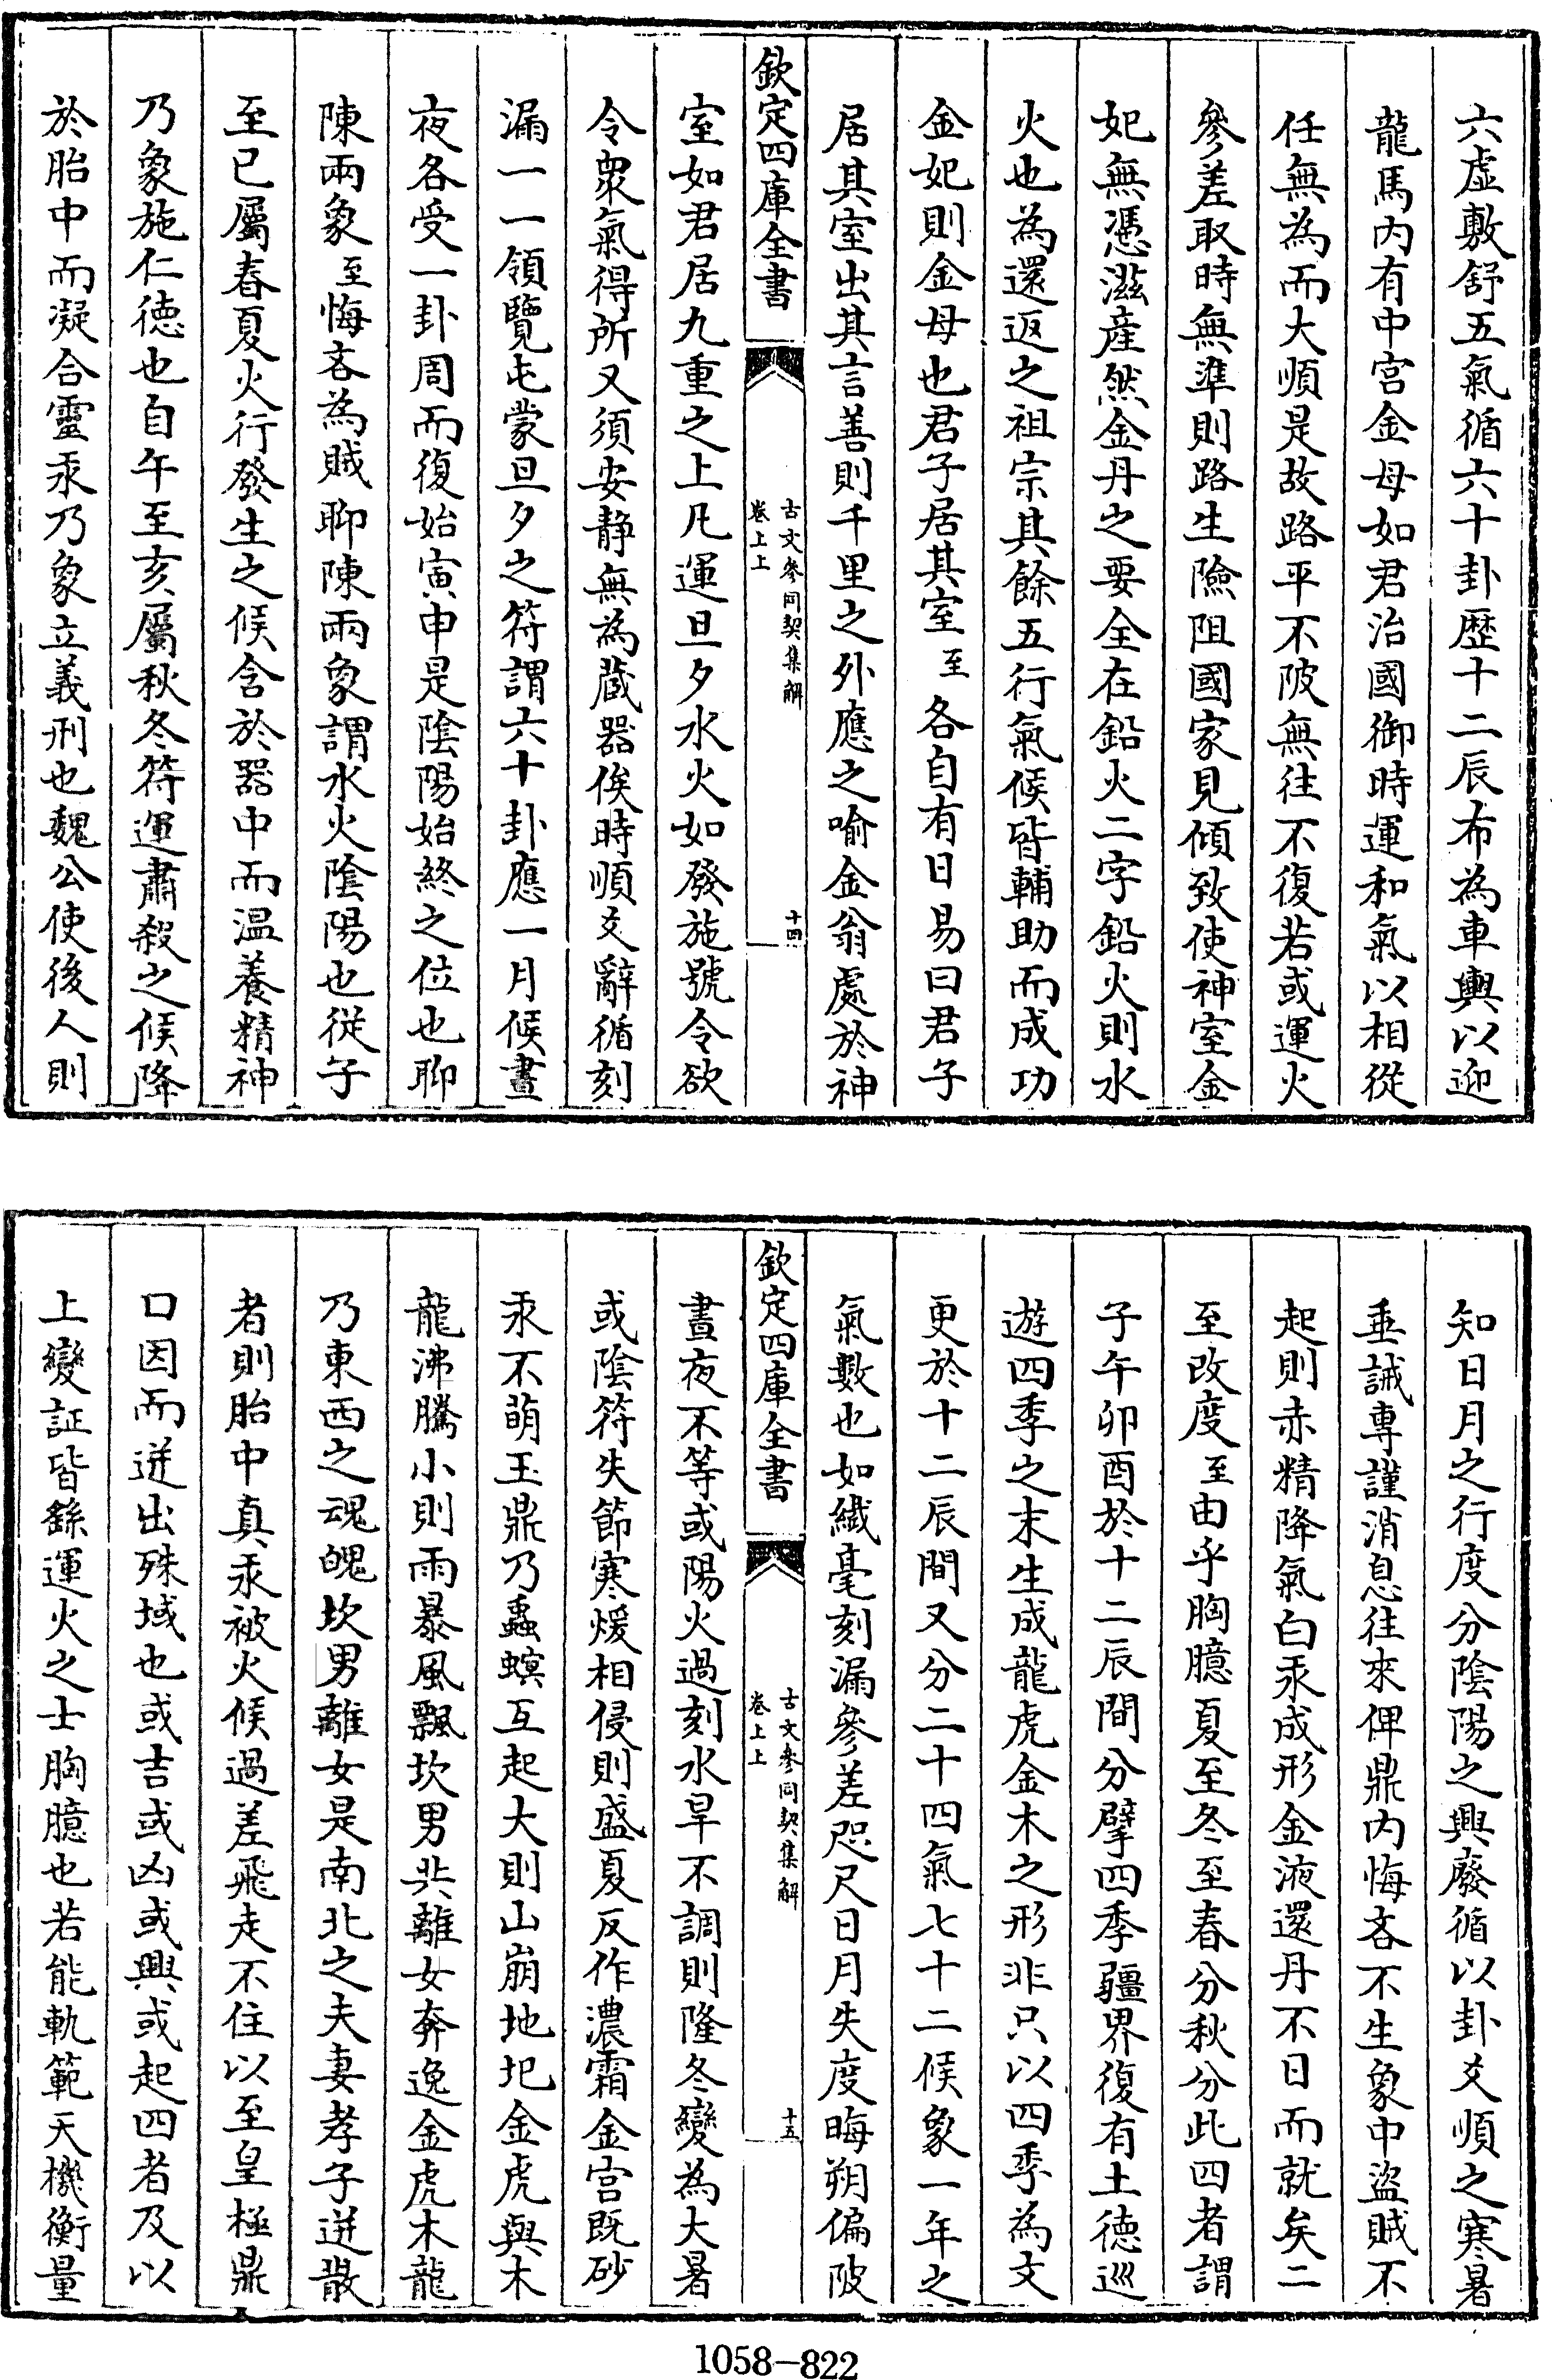 六虛敷舒五氣循六十卦歴十二辰布為車輿以迎
龍馬内有中宫金母如君治國御時運和氣以相從
任無為而大順是故路平不陂無往不復若或運火
參差取時無準則路生險阻國家見傾致使神室金
妃無憑滋産然金丹之要全在鉛火二字鉛火則水
火也為還返之祖宗其餘五行氣候皆輔助而成功
金妃則金母也君子居其室至各自有日易曰君子
居其室出其言善則千里之外應之喻金翁處於神
欽定四庫全書
古文參同契集解
卷上上
十四
室如君居九重之上凡運旦夕水火如發施號令欲
令衆氣得所又須安静無為蔵器俟時順爻辭循刻
漏一一領覽屯蒙旦夕之符謂六十卦應一月候晝
夜各受一卦周而復始寅申是陰陽始終之位也聊
陳兩象至悔吝為賊聊陳兩象謂水火陰陽也從子
至巳屬春夏火行發生之候含於器中而温養精神
乃象施仁徳也自午至亥屬秋冬符運肅殺之候降
於胎中而凝合靈汞乃象立義刑也魏公使後人則
知日月之行度分陰陽之興廢循以卦爻順之寒暑
垂誡專謹消息往來俾鼎内悔吝不生象中盜賊不
起則赤精降氣白汞成形金液還丹不日而就矣二
至改度至由乎胸臆夏至冬至春分秋分此四者謂
子午卯酉於十二辰間分擘四季疆界復有土德巡
遊四季之末生成龍虎金木之形非只以四季為文
更於十二辰間又分二十四氣七十二候象一年之
氣數也如纎毫刻漏參差咫尺日月失度晦朔偏陂
欽定四庫全書
古文參同契集解
卷上上
十五
晝夜不等或陽火過刻水旱不調則隆冬變為大暑
或陰符失節寒煖相侵則盛夏反作濃霜金宫既砂
汞不萌玉鼎乃蟲螟互起大則山崩地圯金虎與木
龍沸騰小則雨暴風飄坎男共離女奔逸金虎木龍
乃東西之魂魄坎男離女是南北之夫妻孝子迸散
者則胎中真汞被火候過差飛走不住以至皇極鼎
口因而迸出殊域也或吉或凶或興或起四者及以
上變証皆繇運火之士胸臆也若能軌範天機衡量
1058-822